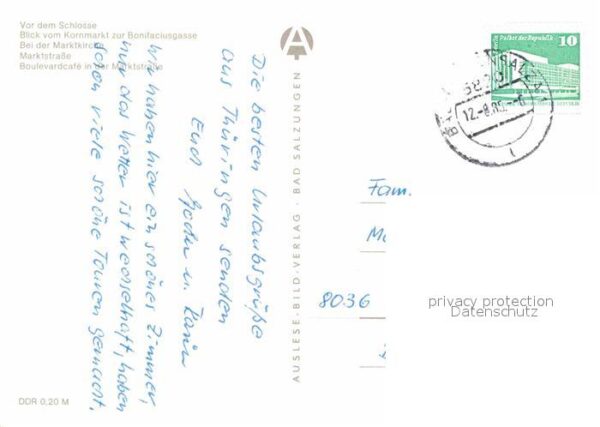 Vor dem Schlosse
Blick vom Kornmarkt zur Bonifaciusgasse
Bei der Marktkirche
Marktstraße
Boulevardcafé in der Marktstraße
Die besten Urlaubsgrüße
aus Thüringen senden
Euch
Wir haben hier ein schönes Zimmer,
nur das Wetter ist wechselhaft, haben
schon viele schöne Touren gemacht.
DDR 0,20 M
A
AUSLESE-BILD-VERLAG · BAD SALZUNGEN
Palast der Republik
10
5820
12.-8.80.-
Fam.
8036
privacy protection
Datenschutz